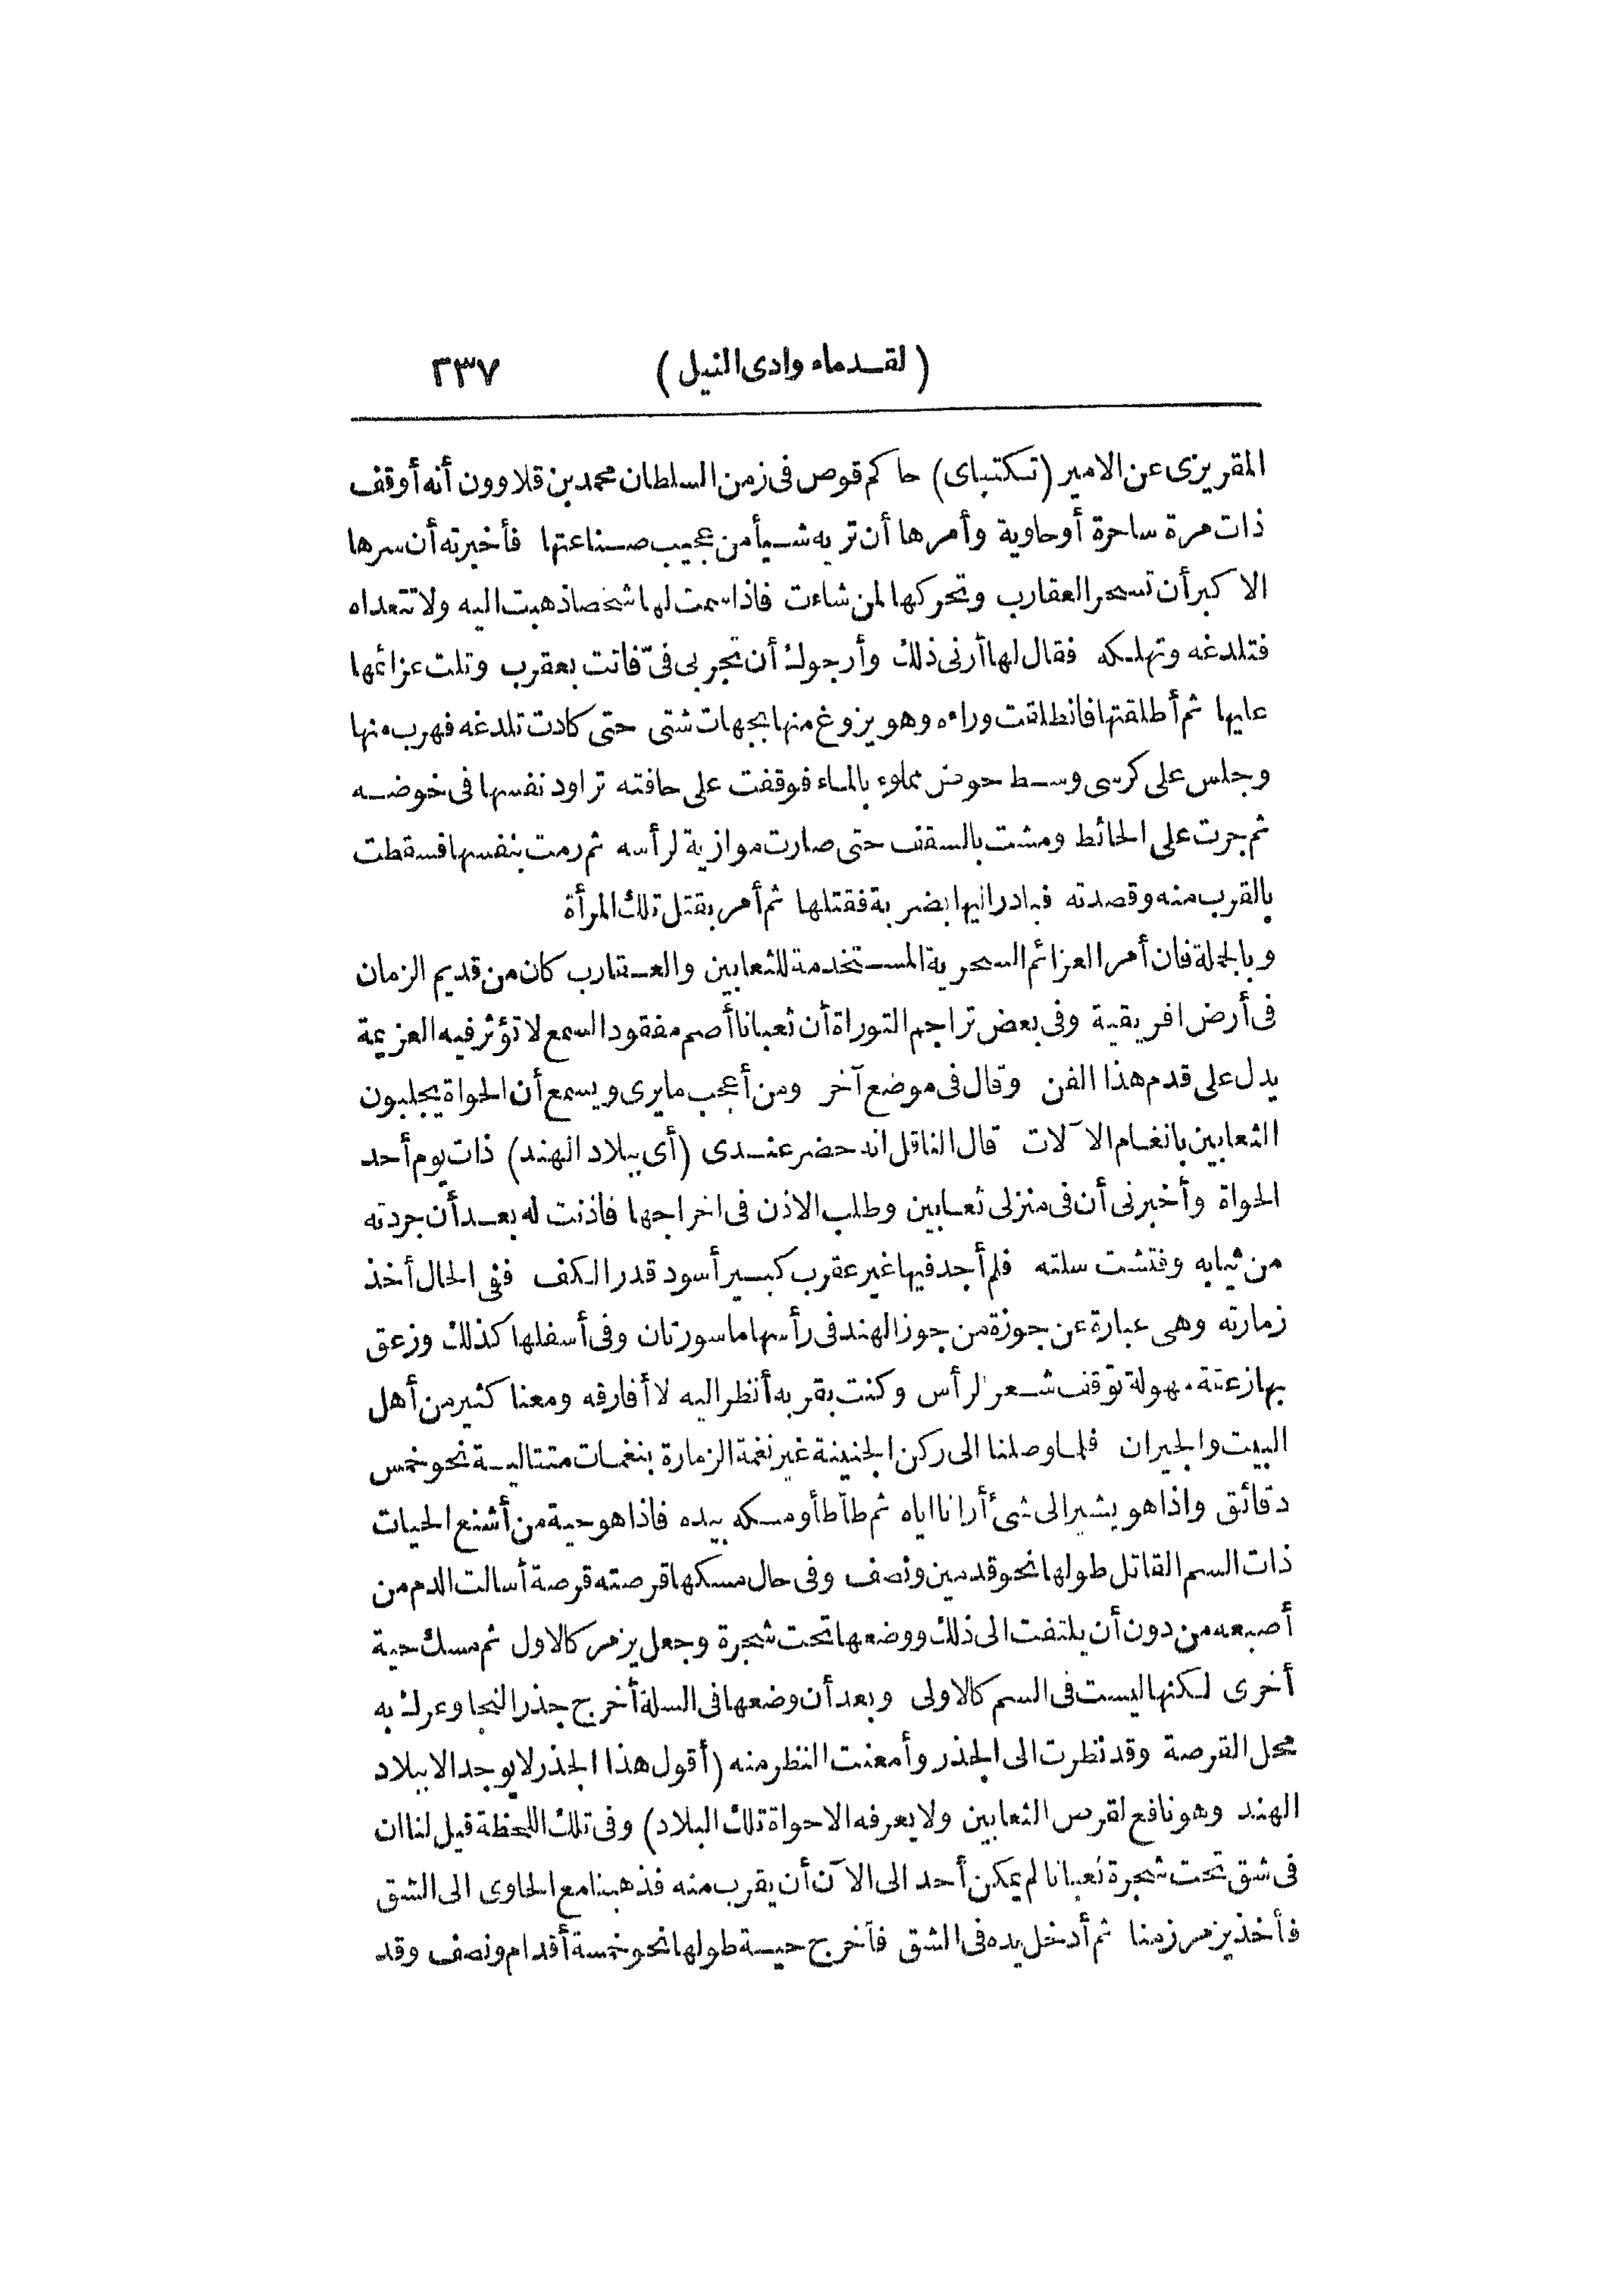 (لقدماء وادى النيل) ٣٣٧
المقريزى عن الامير (تكتباى) حاكم قوص فى زمن السلطان محمد بن قلاوون أنه أوقف
ذات مرة ساحرة أو حاوية وأمرها أن تريه شيأ من عجيب صناعتها فأخبرته أن سرها
الاكبر أن تسحر العقارب وتحركها لمن شاءت فاذا سمت لها شخصا ذهبت اليه ولا تتعداه
فتلدغه وتهلكه فقال لها أرنى ذلك وأرجوك أن تجربى فىّ فاتت بعقرب وتلت عزائمها
عليها ثم أطلقتها فانطلقت وراءه وهو يزوغ منها بجهات شتى حتى كادت تلدغه فهرب منها
وجلس على كرسى وسط حوض مملوء بالماء فوقفت على حافته تراود نفسها فى خوضه
ثم جرت على الحائط ومشت بالسقف حتى صارت موازية لرأسه ثم رمت بنفسها فسقطت
بالقرب منه وقصدته فبادر اليها بضربة فقتلها ثم أمر بقتل تلك المرأة
وبالجملة فان أمر العزائم السحرية المستخدمة للثعابين والعقارب كان من قديم الزمان
فى أرض افريقية وفى بعض تراجم التوراة أن ثعبانا أصم مفقود السمع لا تؤثر فيه العزيمة
يدل على قدم هذا الفن وقال فى موضع آخر ومن أعجب ما يرى ويسمع أن الحواة يجلبون
الثعابين بانغام الآلات قال الناقل انه حضر عندى (أى ببلاد الهند) ذات يوم أحد
الحواة وأخبرنى أن فى منزلى ثعابين وطلب الاذن فى اخراجها فاذنت له بعد أن جردته
من ثيابه وفتشت سلته فلم أجد فيها غير عقرب كبير أسود قدر الكف ففى الحال أخذ
زمارته وهى عبارة عن جوزة من جوز الهند فى رأسها ماسورتان وفى أسفلها كذلك وزعق
بها زعقة مهولة توقف شعر الرأس وكنت بقربه أنظر اليه لا أفارقه ومعنا كثير من أهل
البيت والجيران فلما وصلنا الى ركن الجنينة غير نغمة الزمارة بنغمات متتالية نحو خمس
دقائق واذا هو يشير الى شئ أرانا اياه ثم طأطأ ومسكه بيده فاذا هو حية من أشنع الحيات
ذات السم القاتل طولها نحو قدمين ونصف وفى حال مسكها قرصته قرصة أسالت الدم من
أصبعه من دون أن يلتفت الى ذلك ووضعها تحت شجرة وجعل يزمر كالاول ثم مسك حية
أخرى لكنها ليست فى السم كالاولى وبعد أن وضعها فى السلة أخرج جذر النجا وعرك به
محل القرصة وقد نظرت الى الجذر وأمعنت النظر منه (أقول هذا الجذر لا يوجد الا ببلاد
الهند وهو نافع لقرص الثعابين ولا يعرفه الا حواة تلك البلاد) وفى تلك اللحظة قيل لنا ان
فى شق تحت شجرة ثعبانا لم يمكن أحد الى الآن أن يقرب منه فذهبنا مع الحاوى الى الشق
فأخذ يزمر زمنا ثم أدخل يده فى الشق فأخرج حية طولها نحو خمسة أقدام ونصف وقد